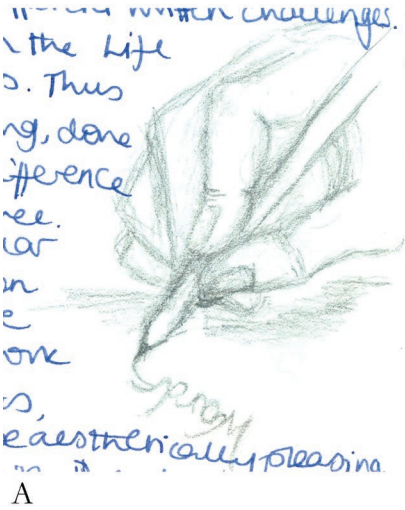 challenges.
the Life
s. Thus
ng, done
fference
ree.
on
e
ork
s,
e aesthetically pleasing
A